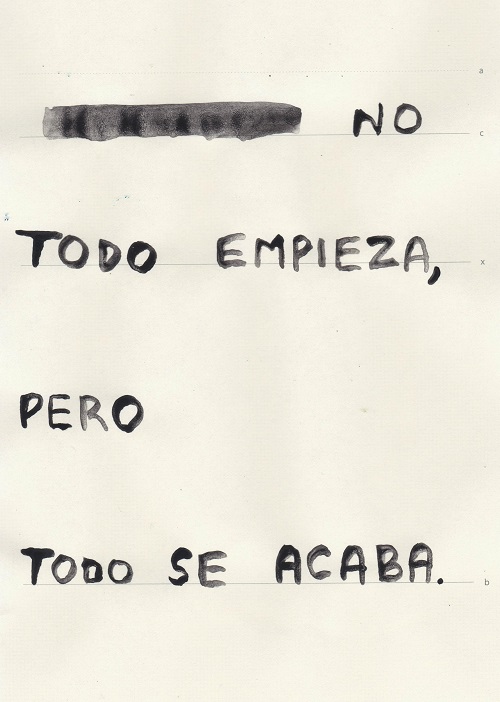 a
NO
c
TODO EMPIEZA,
x
PERO
TODO SE ACABA.
b